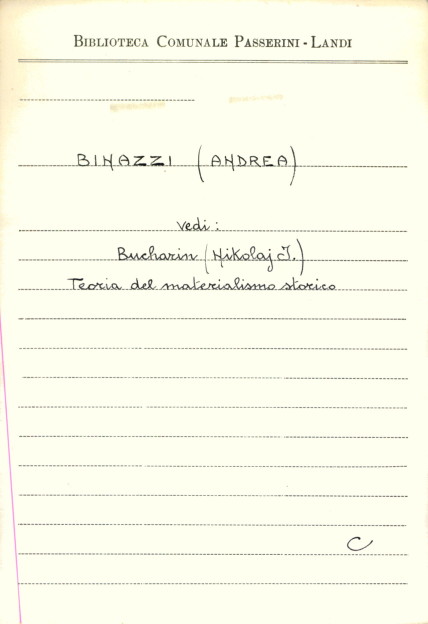 BIBLIOTECA COMUNALE PASSERINI - LANDI
BINAZZI (ANDREA)
vedi:
Bucharin (Nikolaj I.)
Teoria del materialismo storico
C